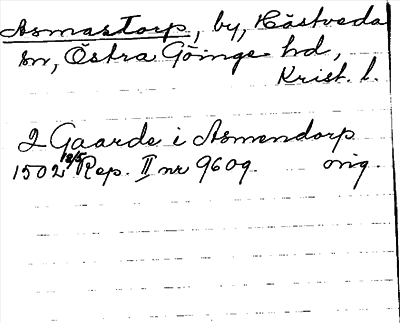 Asmastorp, by, Hästveda
sn, Östra Göinge hd,
Krist. l.
2 Gaarde i Asmendorp
1502 12/5 Rep. II nr 9609. orig.